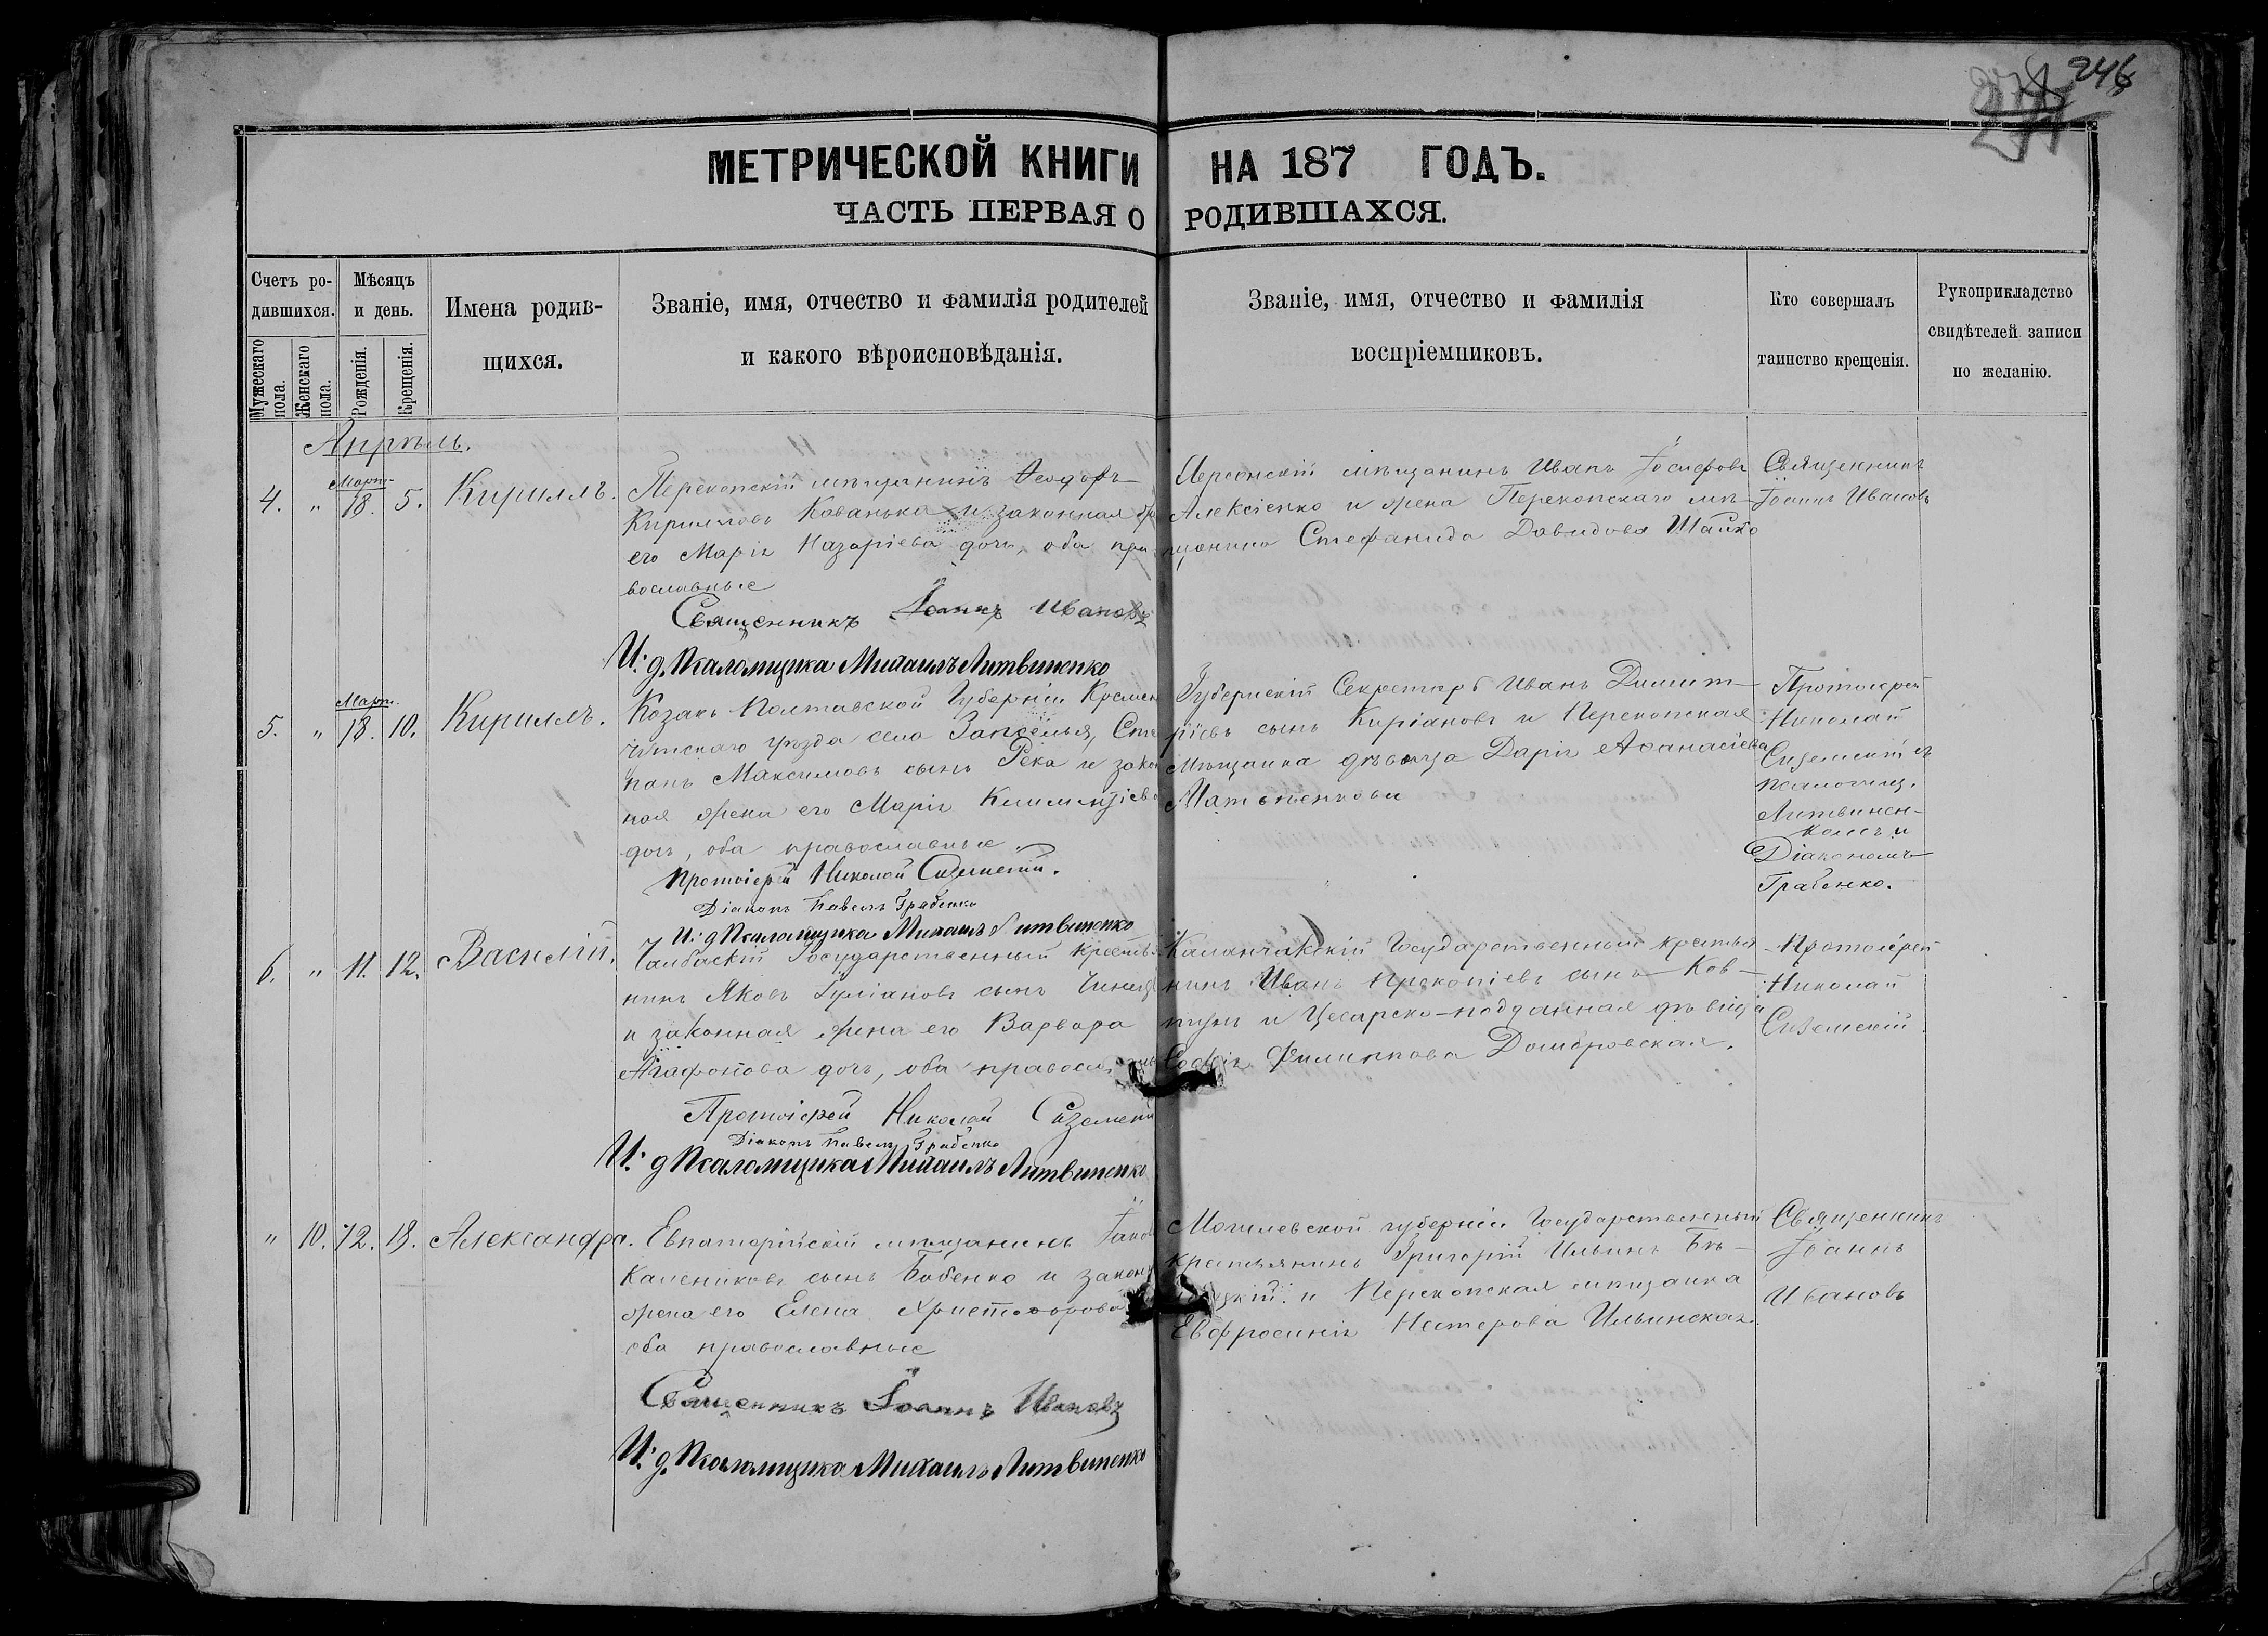 246
МЕТРИЧЕСКОЙ КНИГИ НА 187 ГОДЪ.
ЧАСТЬ ПЕРВАЯ О РОДИВШАХСЯ.
Счетъ ро-
дившихся.
Мужескаго пола.
Женскаго пола.
Мѣсяцъ
и день.
Рожденія.
Крещенія.
Имена родив-
щихся.
Званіе, имя, отчество и фамилія родителей
и какого вѣроисповѣданія.
Званіе, имя, отчество и фамилія
воспріемниковъ.
Кто совершалъ
таинство крещенія.
Рукоприкладство
свидѣтелей записи
по желанію.
Апрѣль.
4. " Март. 18. 5. Кириллъ.
Перекопскій мѣщанинъ Ѳеодоръ
Кирилловъ Кованька и законная
его Марія Назаріева дочь, оба пра-
вославные
Священникъ Іоаннъ Ивановъ
И. д. Псаломщика Михаилъ Литвиненко
Херсонскій мѣщанинъ Иванъ Іосифовъ
Алексіенко и жена Перекопскаго мѣ-
щанина Стефанида Давидова Шайко
Священникъ
Іоаннъ Ивановъ
5. " Март. 18. 10. Кириллъ.
Козакъ Полтавской Губерніи Кремен
чугскаго уѣзда села Запселья, Сте
панъ Максимовъ сынъ Река и закон
ная жена его Марія Климентіева
дочь, оба православные
Протоіерей Николай Сиземскій.
Діаконъ Павелъ Грабенко
И. д Псаломщика Михаилъ Литвиненко
Губернскій Секретарь Иванъ Димит-
ріевъ сынъ Киріановъ и Перекопская
Мѣщанка дѣвица Дарія Аѳанасіева
Протоіерей
Николай
Сиземскій съ
псаломщ.
Литвинен-
комъ и
Діакономъ
Грабенко.
6. " 11. 12. Василій.
Чалбаскій Государственный крестья
нинъ Яковъ Іуліановъ сынъ
и законная жена его Варвара
Агафонова дочь, оба правосл.
Протоіерей Николай Сиземскій
Діаконъ Павелъ Грабенко
И. д Псаломщика Михаилъ Литвиненко
Каланчакскій Государственный крестья
нинъ Иванъ Прокопіевъ сынъ Ков-
тунъ и Цесарско-подданная дѣвица
Софія Филиппова Домбровская.
Протоіерей
Николай
Сиземскій
" 10. 12. 18. Александра.
Евпаторійскій мѣщанинъ
сынъ Бабенко и закон
жена его Елена Христофорова
оба православные
Священникъ Іоаннъ Ивановъ
И. д. Псаломщика Михаилъ Литвиненко
Могилевской губерніи Государственный
крестьянинъ Григорій Ильинъ
и Перекопская мѣщанка
Евфросинія Нестерова Ильинская.
Священникъ
Іоаннъ
Ивановъ